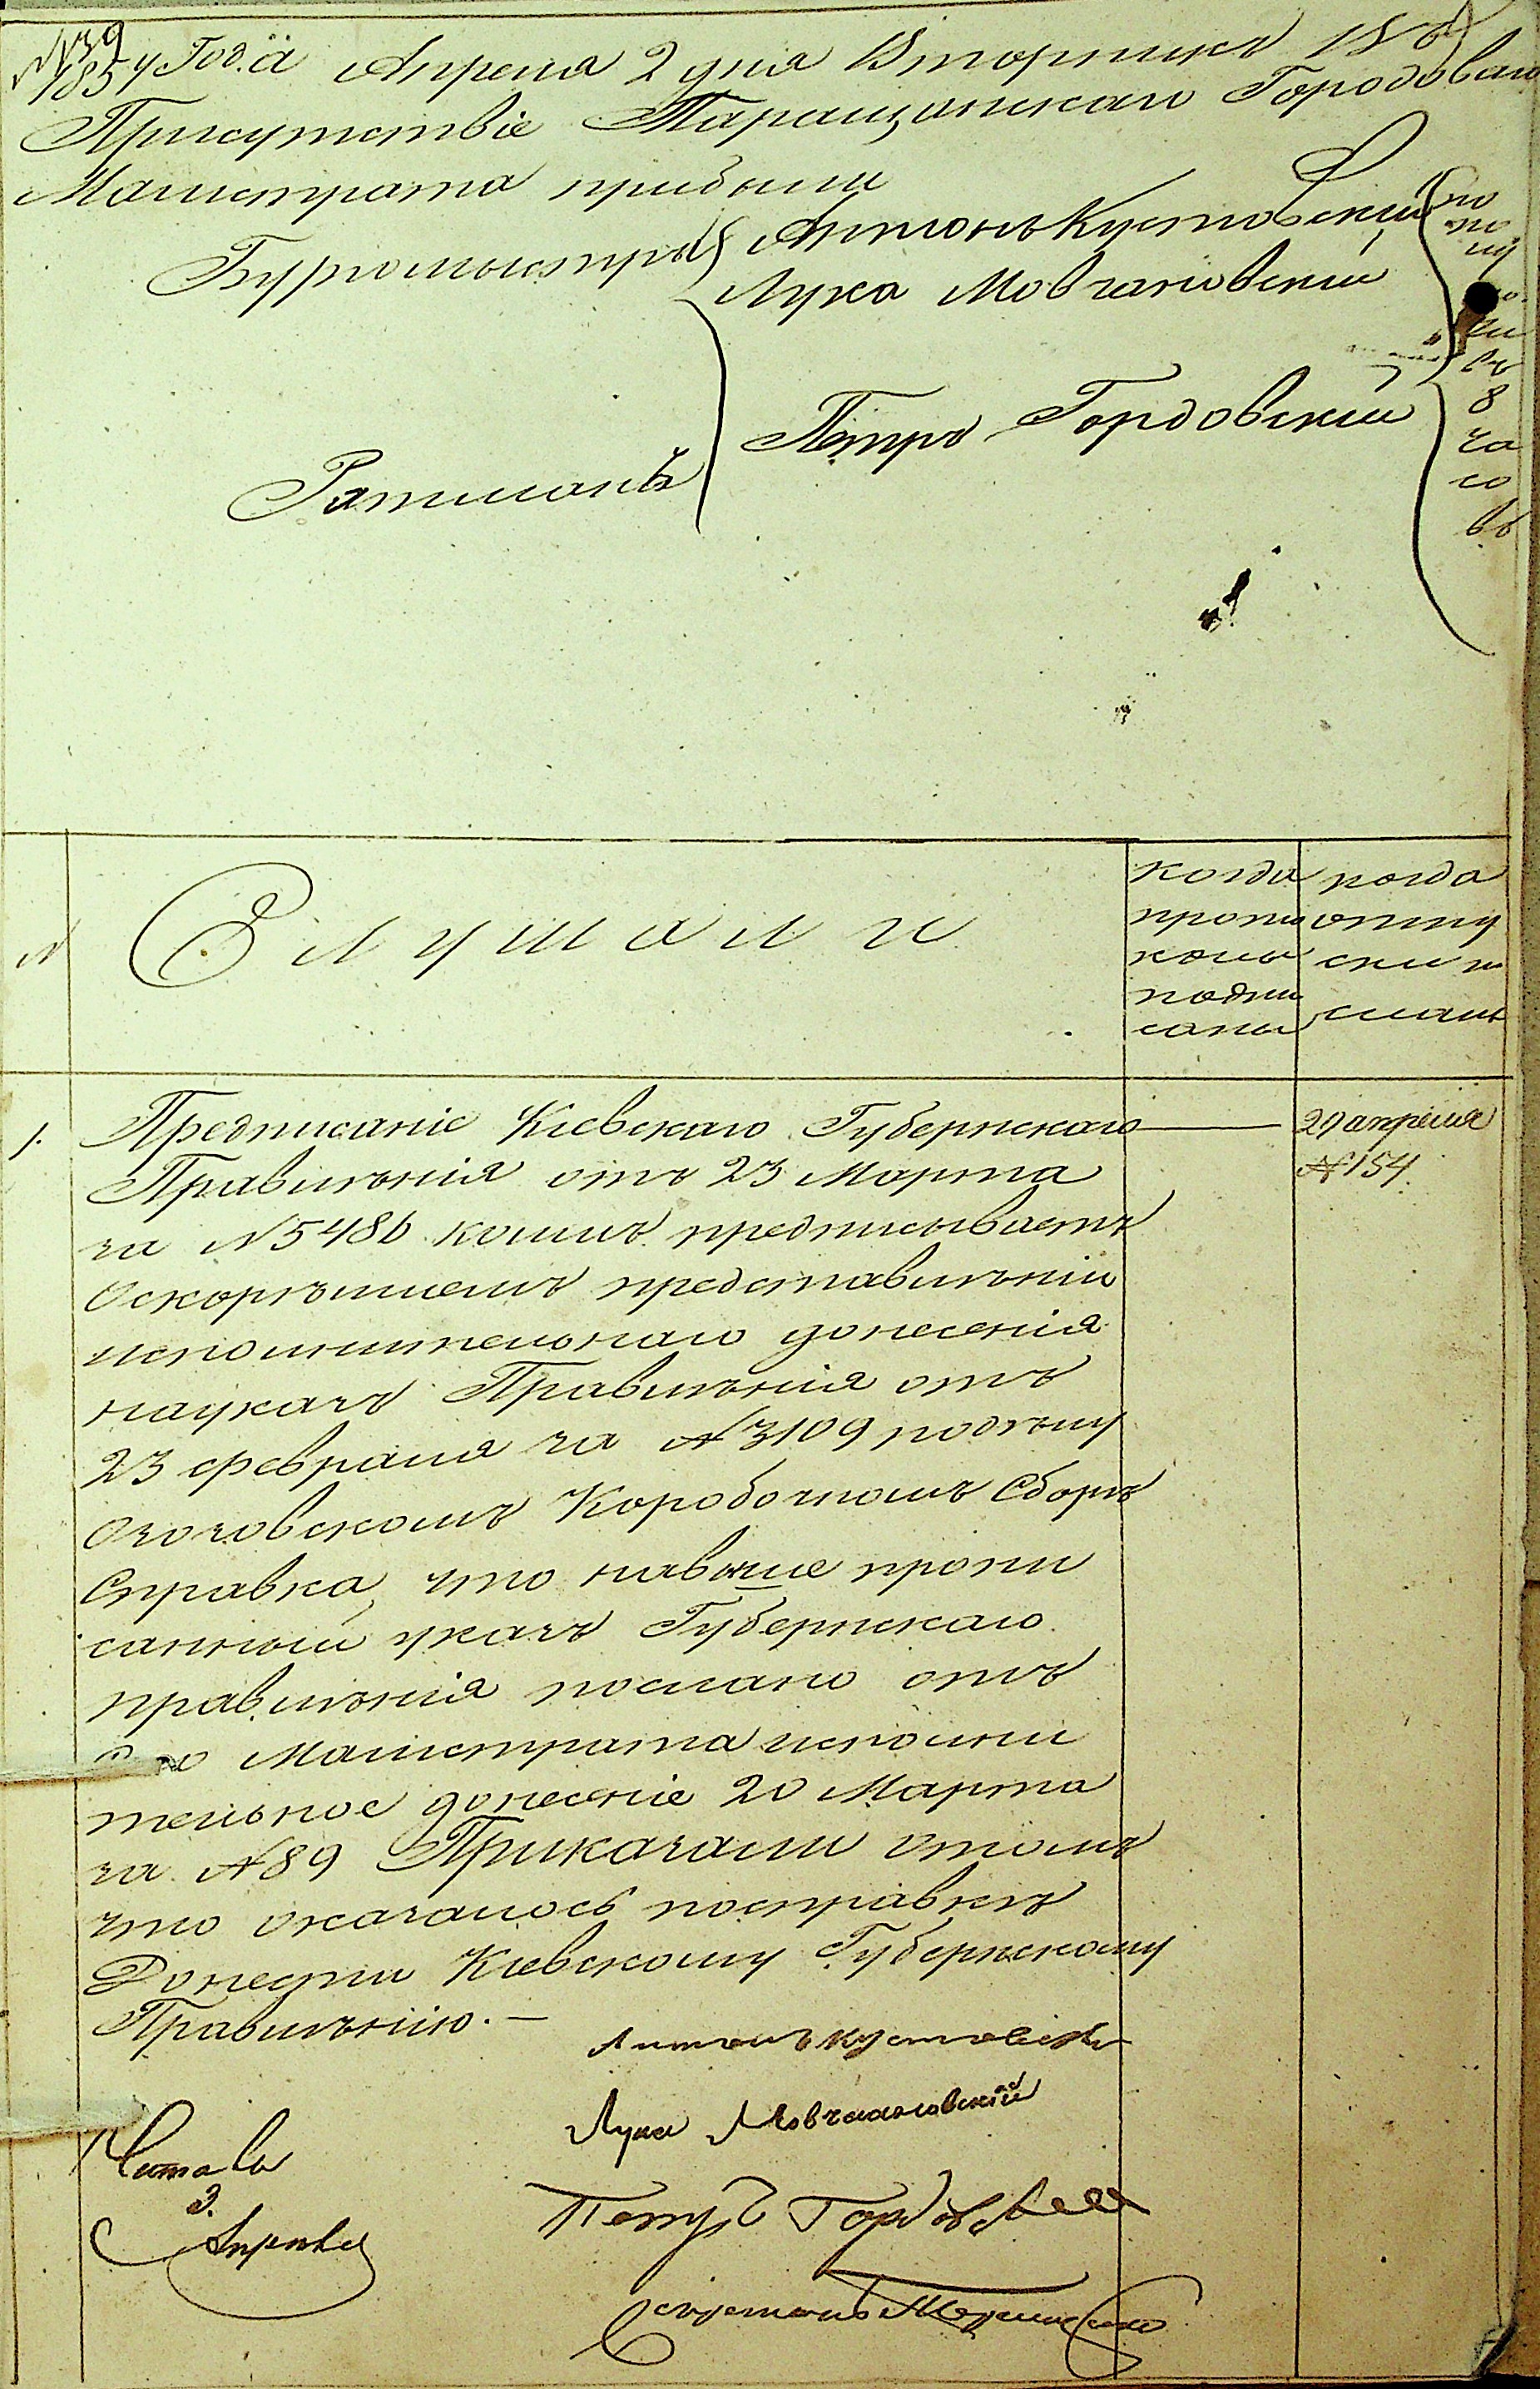 №39
1854 Года Апреля 2 дня Вторникъ Въ
Присутствіе Таращанскаго Городоваго
Магистрата прибыли
Бургомистры Антонъ Кустовскій
Лука Мовчановскій
Ратманъ Петръ Гордовскій
по
по
лу
ка
ни
въ
8
ча
со
въ
№
Слушали
когда
прото
колы
подпи
саны
когда
отпу
ски по
сланы
1. Предписаніе Кіевскаго Губернскаго
Правленія отъ 23 Марта
за №5486 коимъ предписываетъ
Оскорѣшиемъ представилѣніи
исполнительнаго донесенія
науказъ Правилѣнія отъ
23 февраля за №3109 подѣлу
Озозовскомъ Коробочномъ Сборѣ
Справка, что навыше пропи
санный указъ Губернскаго
правилѣнія послано отъ
Магистрата исполни
тельное донесеніе 20 Марта
за №89 Приказали отомъ
что оказалось посправкѣ
Донести Кіевскому Губернскому
Правилѣнію. —
29 апреля
№154.
Антонъ Кустовскій
Лука Мовчановскій
Петръ Гордовскій
Читалъ
3.
Апреля